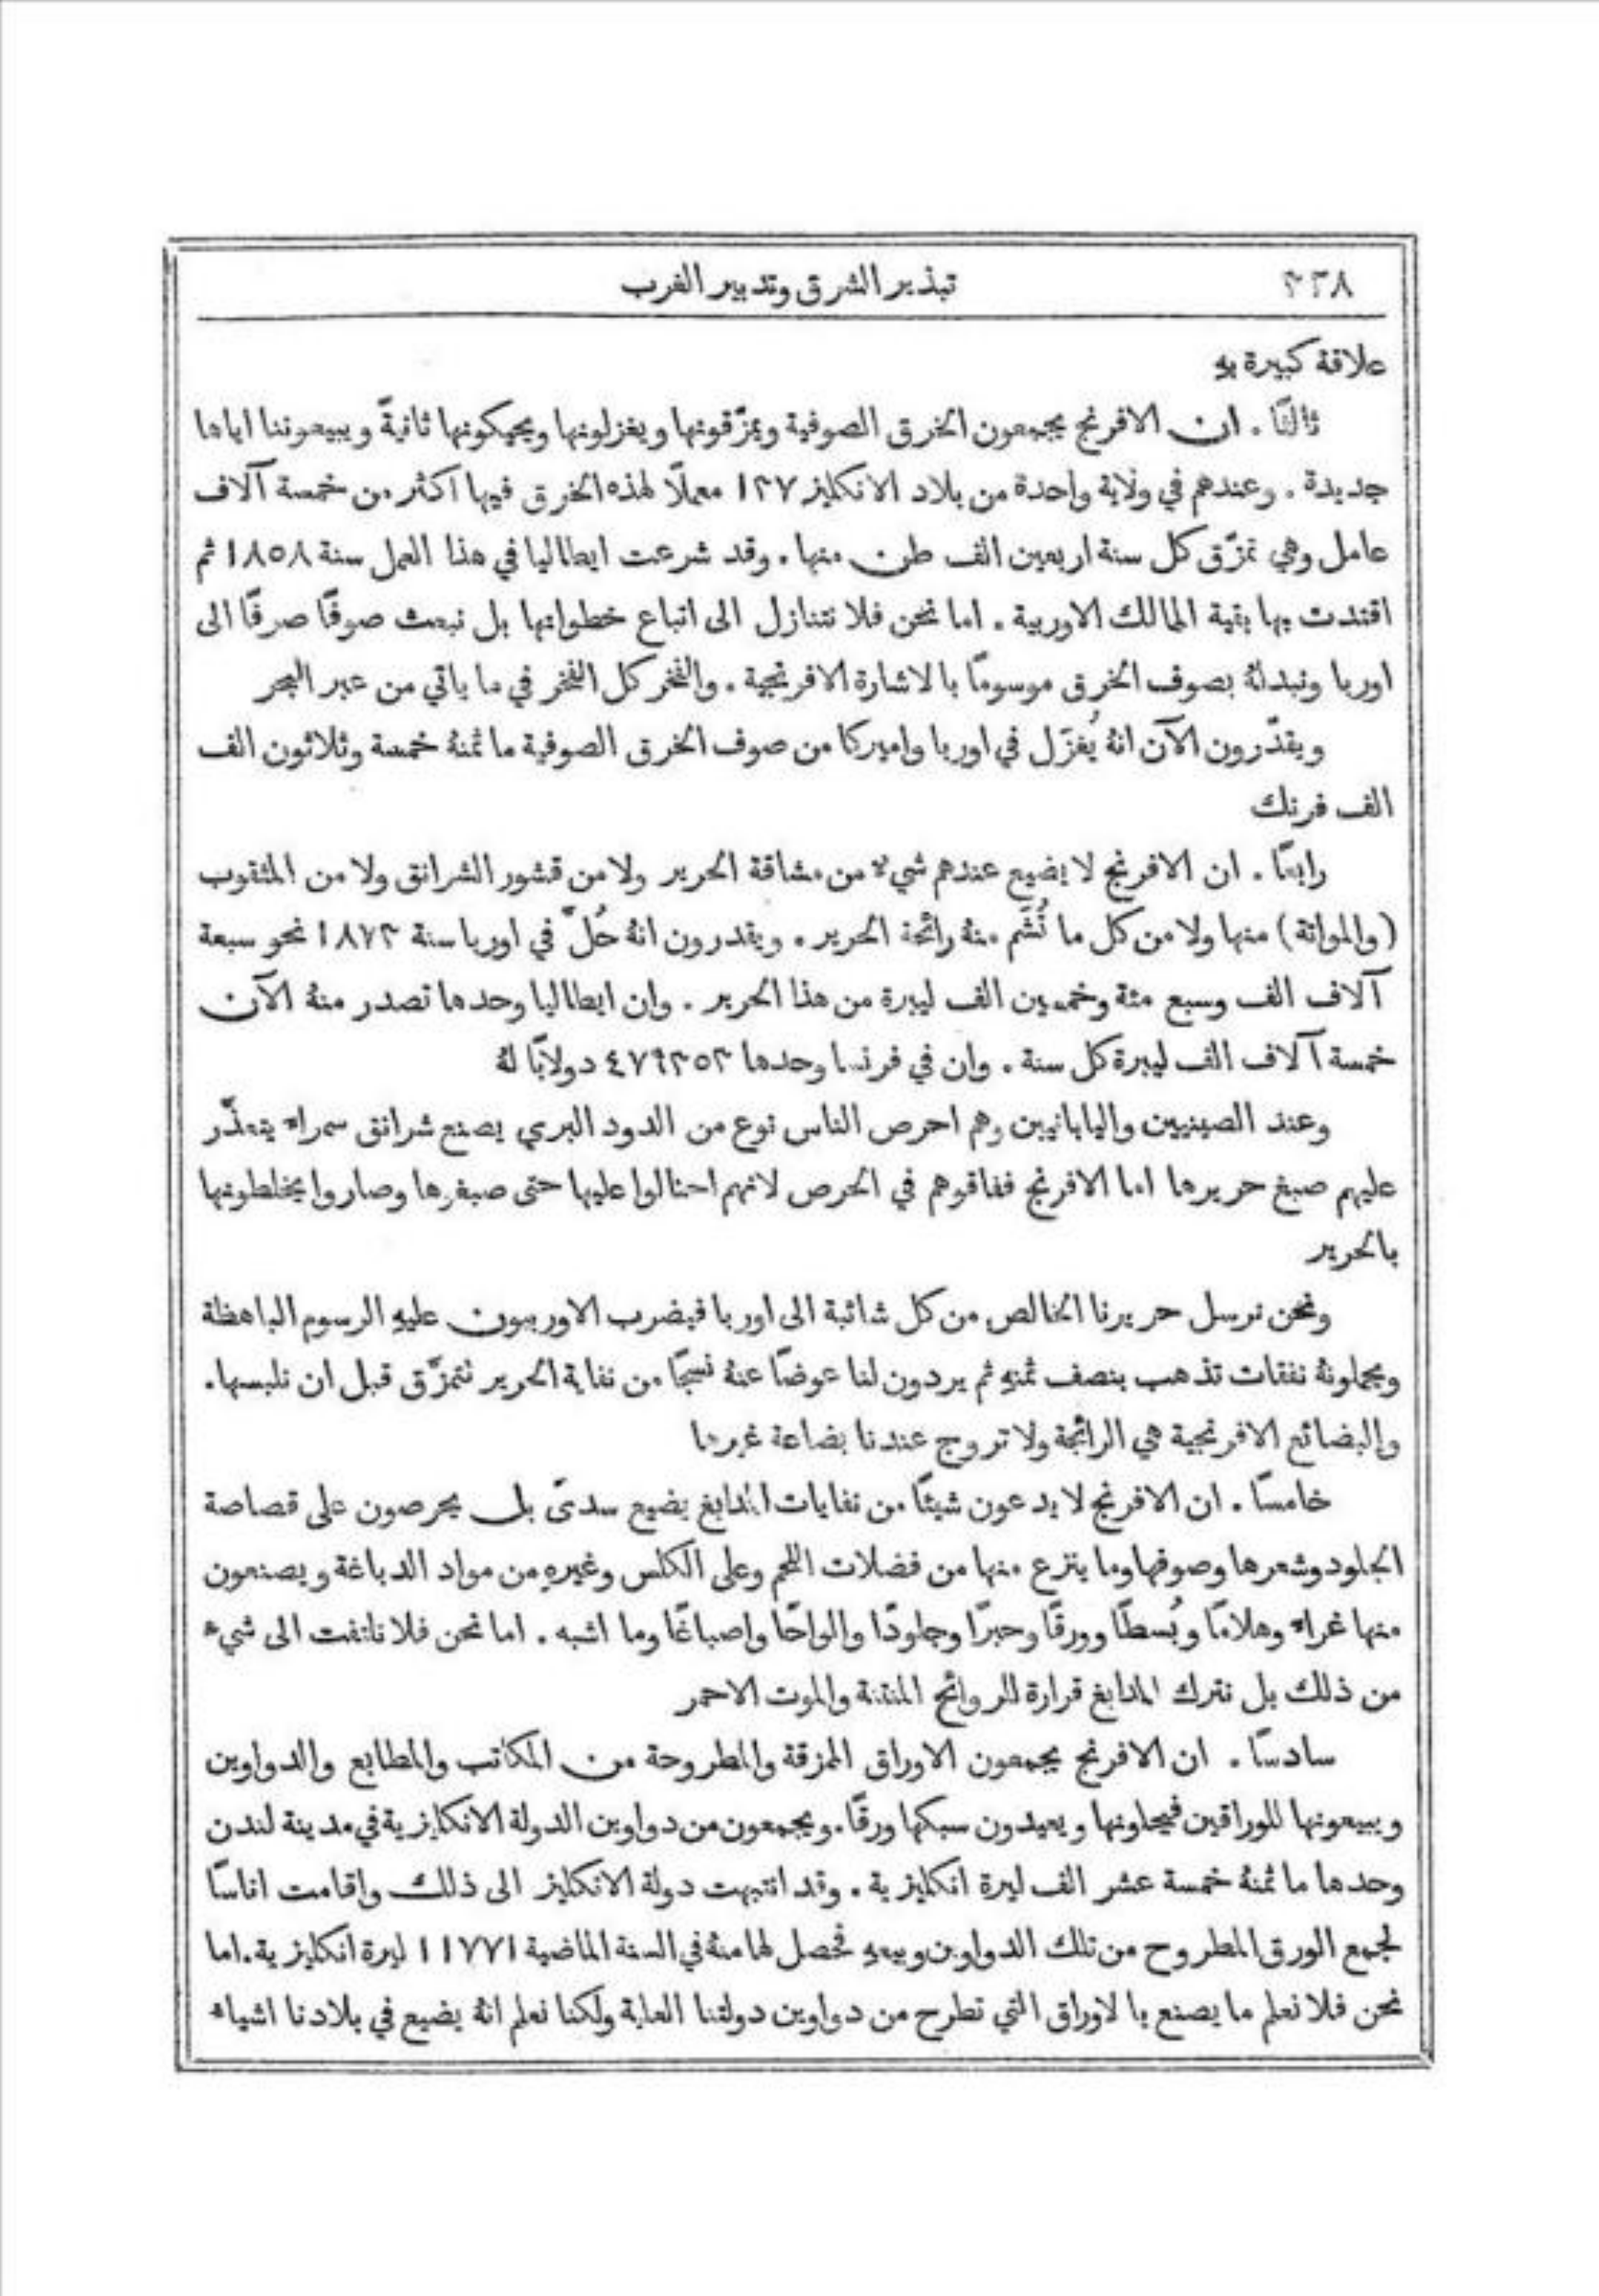 ٢٣٨
تبذير الشرق وتدبير الغرب
علاقة كبيرة بهِ
ثالثًا . ان الافرنج يجمعون الخرق الصوفية ويمزّقونها ويغزلونها ويحيكونها ثانيةً ويبيعوننا اياها
جديدة . وعندهم في ولاية واحدة من بلاد الانكليز ١٢٧ معملًا لهذه الخرق فيها اكثر من خمسة آلاف
عامل وهي تمزّق كل سنة اربعين الف طن منها . وقد شرعت ايطاليا في هذا العمل سنة ١٨٥٨ ثم
اقتدت بها بقية الممالك الاوربية . اما نحن فلا نتنازل الى اتباع خطواتها بل نبعث صوفًا صرفًا الى
اوربا ونبدلهُ بصوف الخرق موسومًا بالاشارة الافرنجية . والفخر كل الفخر في ما ياتي من عبر البحر
ويقدّرون الآن انهُ يُغزَل في اوربا واميركا من صوف الخرق الصوفية ما ثمنهُ خمسة وثلاثون الف
الف فرنك
رابعًا . ان الافرنج لا يضيع عندهم شيء من مشاقة الحرير ولا من قشور الشرانق ولا من المثقوب
(والمواتة) منها ولا من كل ما تُشَم منهُ رائحة الحرير . ويقدرون انهُ حُلَّ في اوربا سنة ١٨٧٢ نحو سبعة
آلاف الف وسبع مئة وخمسين الف ليبرة من هذا الحرير . وان ايطاليا وحدها تصدر منهُ الآن
خمسة آلاف الف ليبرة كل سنة . وان في فرنسا وحدها ٤٧٩٢٥٢ دولابًا لهُ
وعند الصينيين واليابانيين وهم احرص الناس نوع من الدود البري يصنع شرانق سمراء يتعذّر
عليهم صبغ حريرها اما الافرنج ففاقوهم في الحرص لانهم احتالوا عليها حتى صبغوها وصاروا يخلطونها
بالحرير
ونحن نرسل حريرنا الخالص من كل شائبة الى اوربا فيضرب الاوربيون عليهِ الرسوم الباهظة
ويحملونهُ نفقات تذهب بنصف ثمنهِ ثم يردون لنا عوضًا عنهُ نسجًا من نفاية الحرير تتمزّق قبل ان نلبسها.
والبضائع الافرنجية هي الرائجة ولا تروج عندنا بضاعة غيرها
خامسًا . ان الافرنج لا يدعون شيئًا من نفايات المدابغ يضيع سدىً بل يحرصون على قصاصة
الجلود وشعرها وصوفها وما ينزع منها من فضلات اللحم وعلى الكلس وغيرهِ من مواد الدباغة ويصنعون
منها غراء وهلامًا وبُسطًا وورقًا وحبرًا وجلودًا والواحًا واصباغًا وما اشبه . اما نحن فلا نلتفت الى شيء
من ذلك بل نترك المدابغ قرارة للروائح المنتنة والموت الاحمر
سادسًا . ان الافرنج يجمعون الاوراق الممزقة والمطروحة من المكاتب والمطابع والدواوين
ويبيعونها للوراقين فيحلونها ويعيدون سبكها ورقًا . ويجمعون من دواوين الدولة الانكليزية في مدينة لندن
وحدها ما ثمنهُ خمسة عشر الف ليرة انكليزية . وقد انتبهت دولة الانكليز الى ذلك واقامت اناسًا
لجمع الورق المطروح من تلك الدواوين وبيعهِ فحصل لها منهُ في السنة الماضية ١١٧٧١ ليرة انكليزية. اما
نحن فلا نعلم ما يصنع بالاوراق التي تطرح من دواوين دولتنا العلية ولكنا نعلم انهُ يضيع في بلادنا اشياء